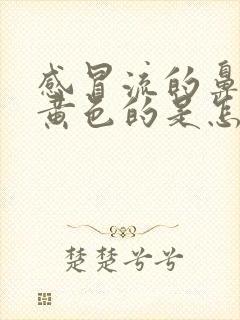 感冒流的鼻
黄色的是怎
楚楚兮兮